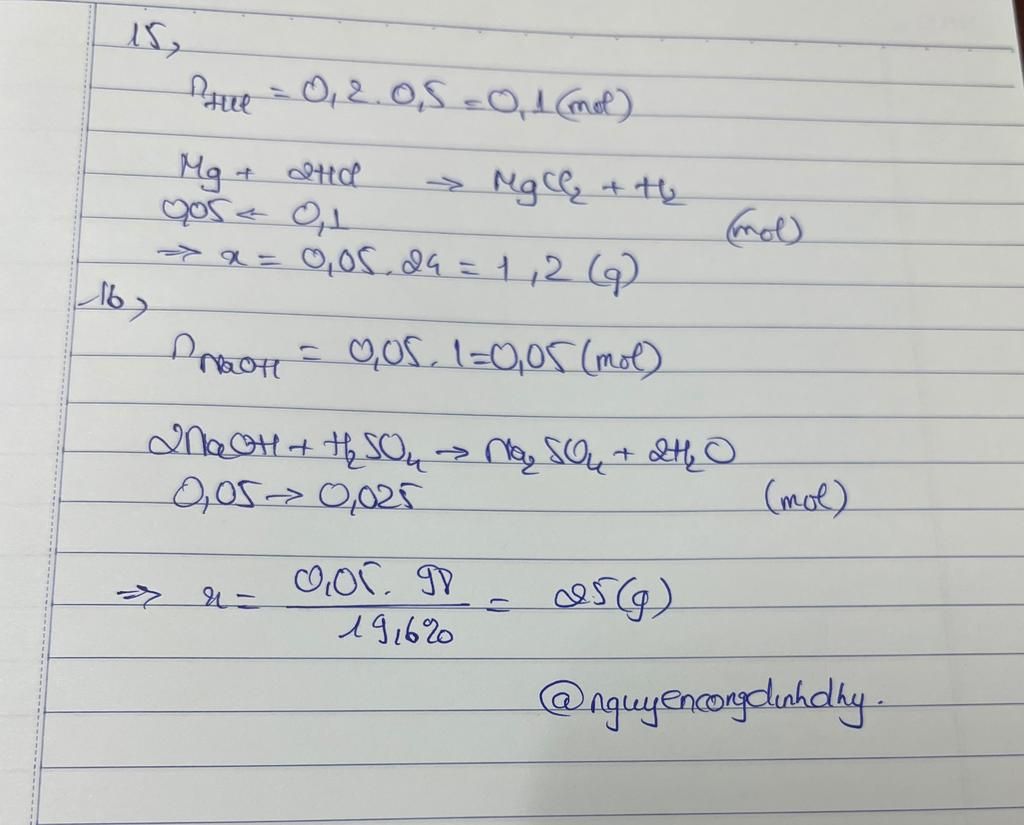 15,
n_HCl = 0,2 . 0,5 = 0,1 (mol)
Mg + 2HCl → MgCl₂ + H₂
0,05 ← 0,1 (mol)
⇒ x = 0,05 . 24 = 1,2 (g)
16,
n_NaOH = 0,05 . 1 = 0,05 (mol)
2NaOH + H₂SO₄ → Na₂SO₄ + 2H₂O
0,05 → 0,025 (mol)
⇒ x = 0,05 . 98 / 19,6% = 25 (g)
@nguyencongdinhdhy.